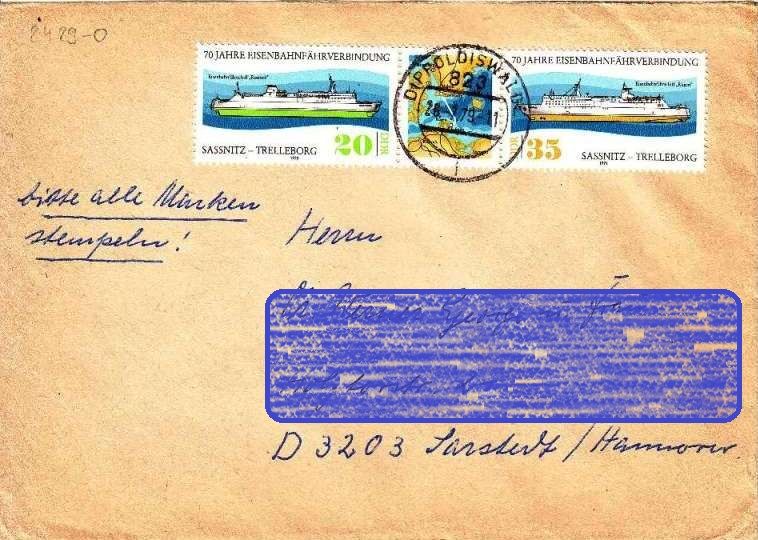 2429-0
70 JAHRE EISENBAHNFÄHRVERBINDUNG
Eisenbahnfährschiff „Rostock“
20
DDR
SASSNITZ – TRELLEBORG
1979
DIPPOLDISWALDE
823
79-11
70 JAHRE EISENBAHNFÄHRVERBINDUNG
Eisenbahnfährschiff „Rügen“
DDR
35
SASSNITZ – TRELLEBORG
bitte alle Marken
stempeln!
Herrn
D 3203 Sarstedt / Hannover